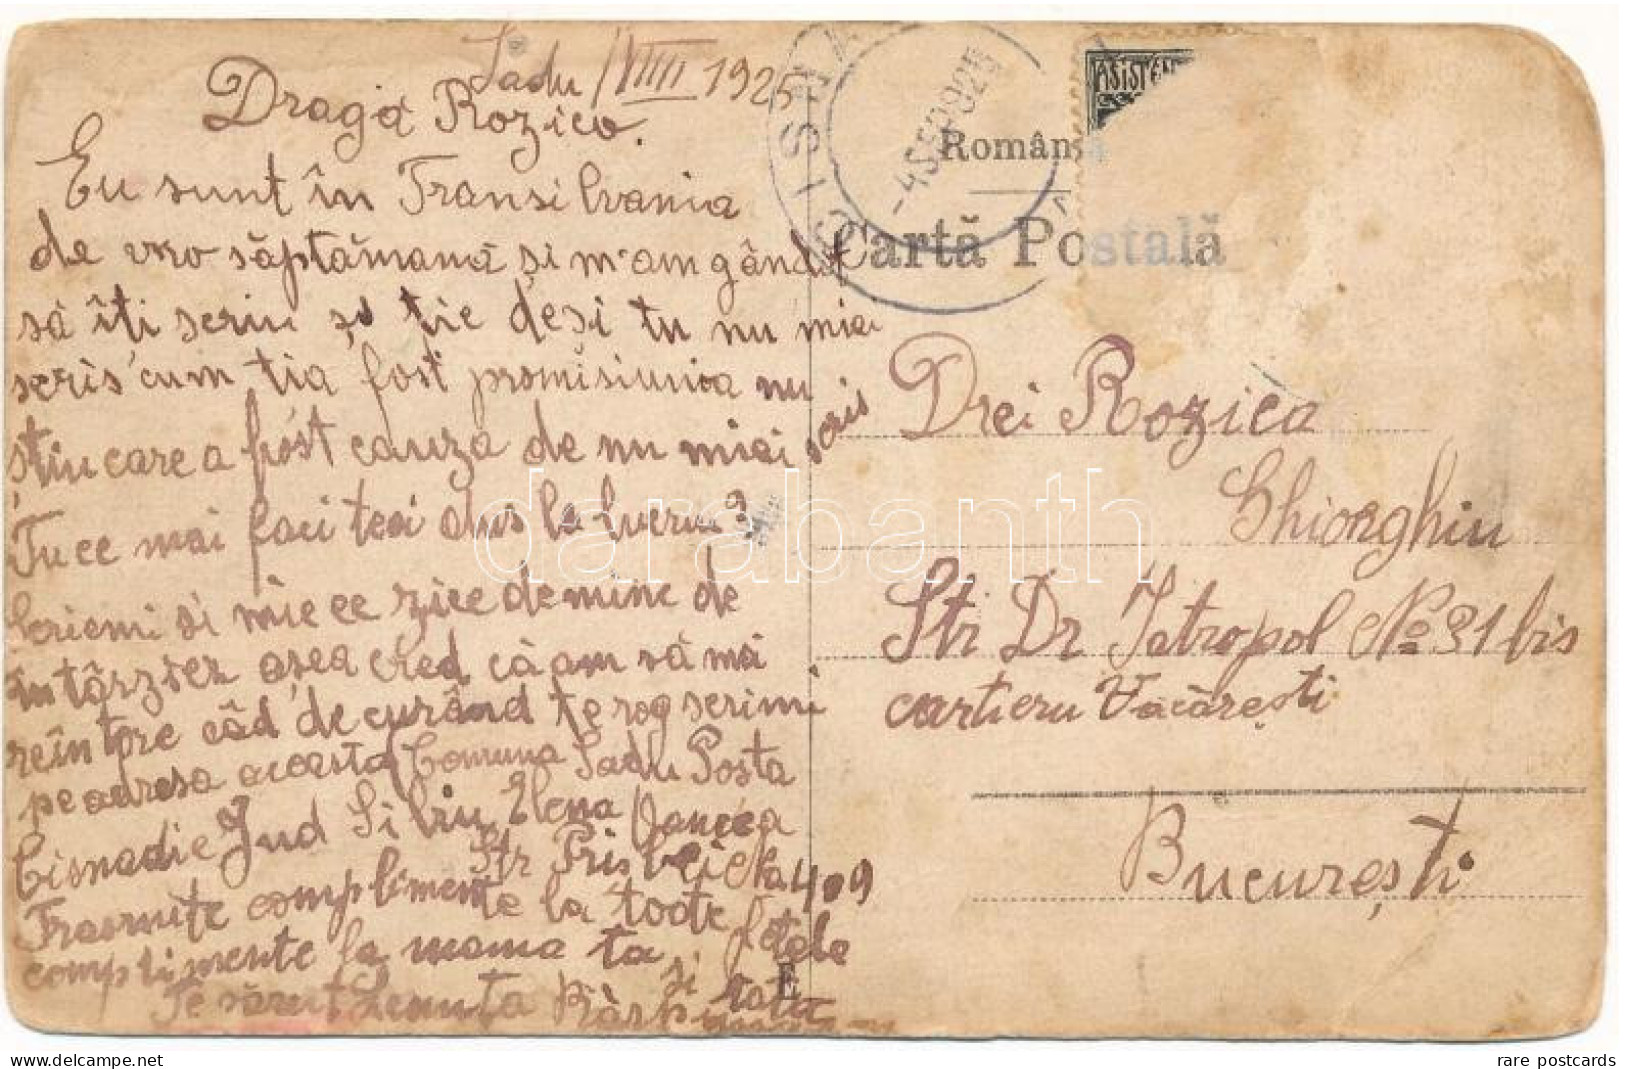 Sadu /VIIII 1925
Dragă Rozico.
Eu sunt în Transilvania
de vro săptămană și m'am gândit
să îți scriu și ție deși tu nu miai
scris cum tia fost promisiunia nu
știu care a fost cauza de nu miai scris
Tu ce mai faci teai dus la lucru?
Scriemi și mie ce zice de mine de
întârziez așea cred că am să mă
reîntorc câd de curând te rog scrimi
pe adresa aceasta Comuna Sadu Posta
Cisnadie Jud Sibiu Elena
Str No 409
Trasmite complimente la toate fetele
complimente la mama ta și tatii
Te sărut Lenuța
CISNĂ
-4SEP925
ASISTEN
România
Carta Poștală
Drei Rozica
Ghiorghiu
Str Dr Iatropol No 31 bis
cartieru Văcărești
București
E
darabanth
rare postcards
delcampe.net